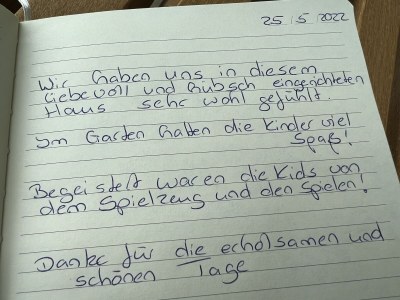 25/5/2022
Wir haben uns in diesem
liebevoll und hübsch eingerichteten
Haus sehr wohl gefühlt.
Im Garten hatten die Kinder viel
Spaß!
Begeistert waren die Kids von
dem Spielzeug und den Spielen!
Danke für die echolsamen und
schönen Tage